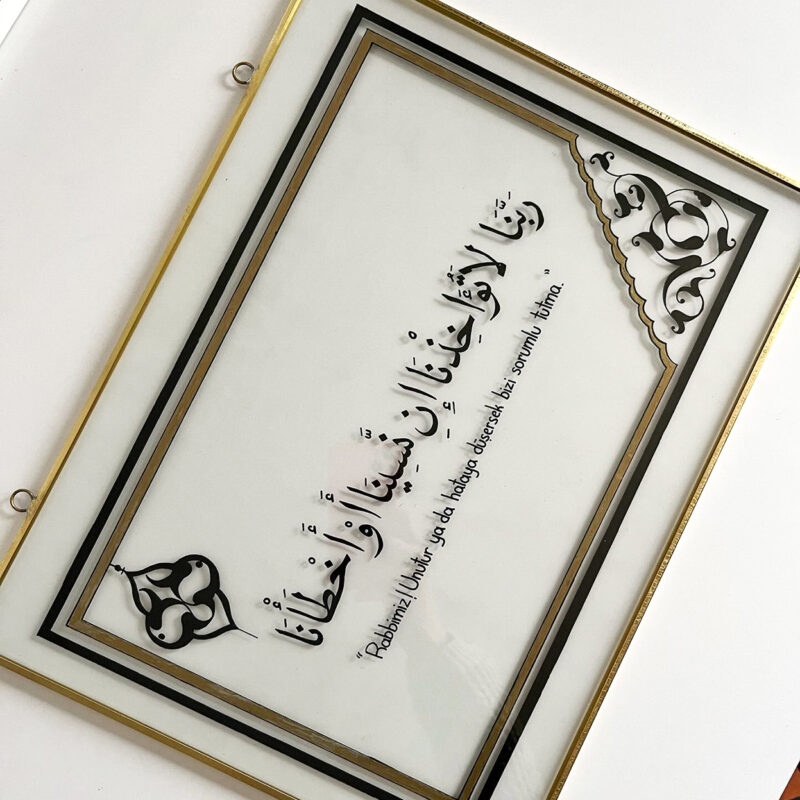 رَبَّنَا لَا تُؤَاخِذْنَا إِن نَّسِينَا أَوْ أَخْطَأْنَا
"Rabbimiz! Unutur ya da hataya düşersek bizi sorumlu tutma."